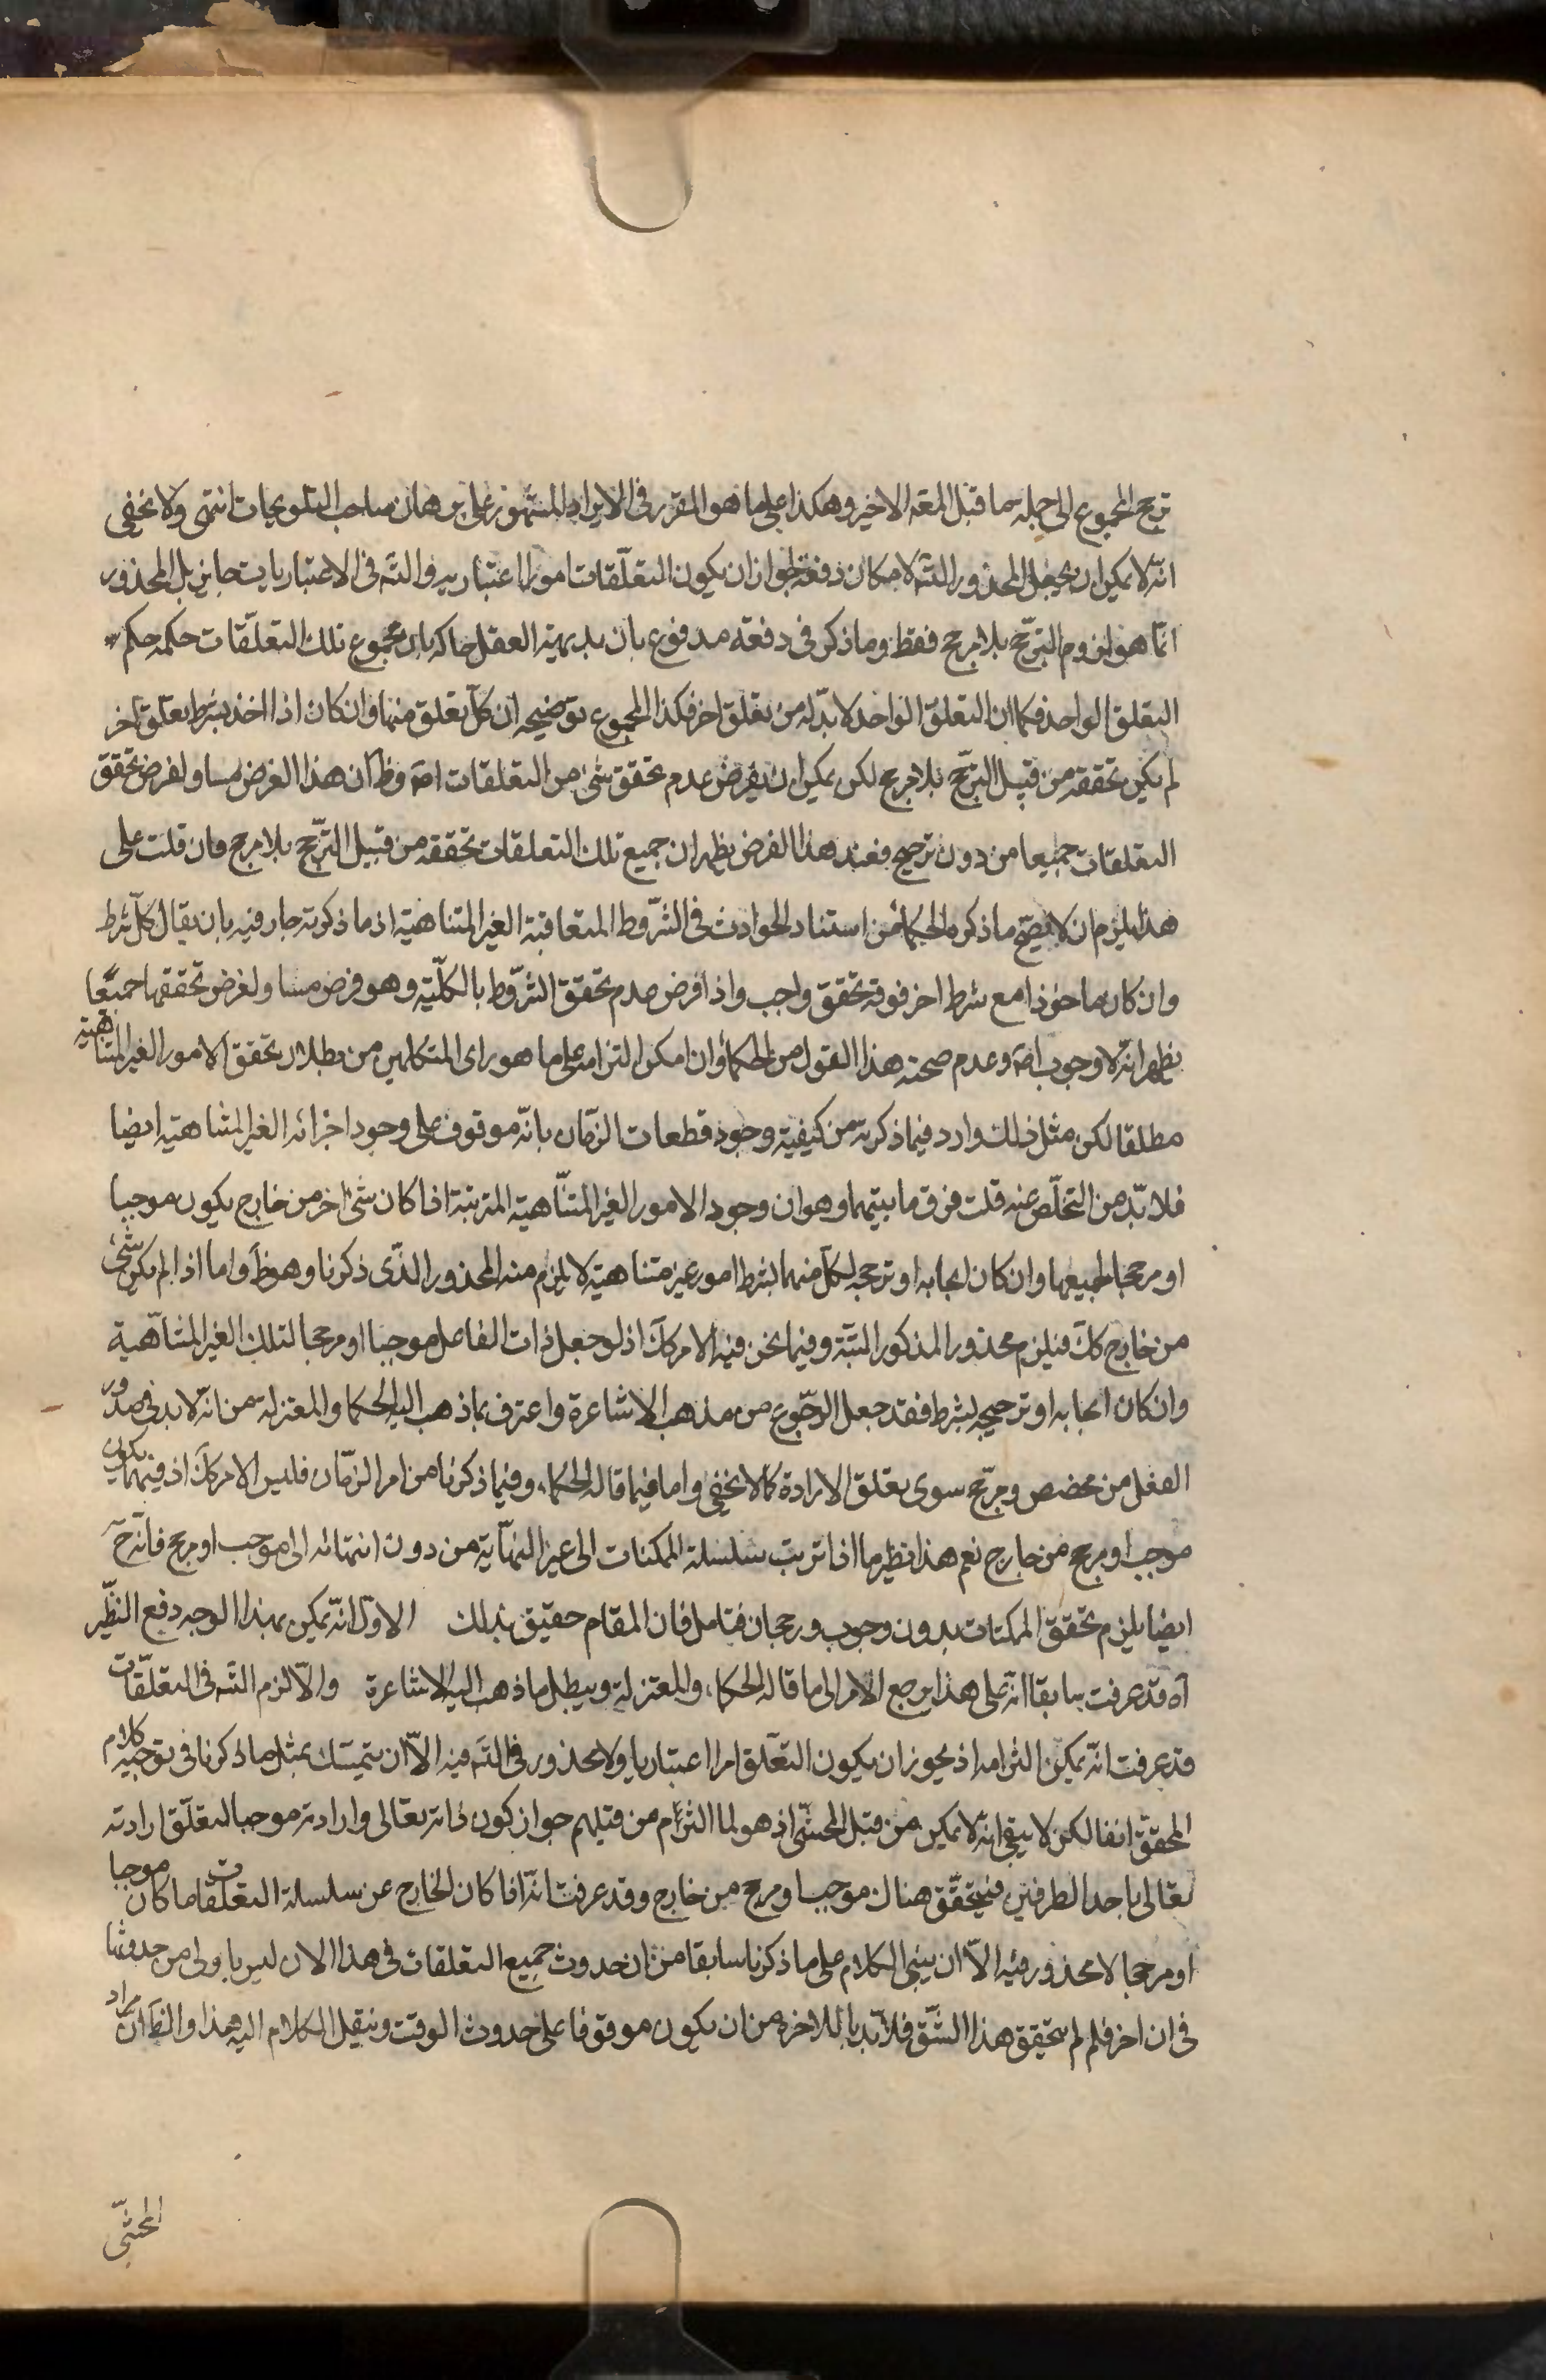 ترجح المجموع الى جملة ما قبل المتعه الاخير وهكذا على ما هو المقرر فى الايراد المشهور على برهان صاحب التلويحات انتهى ولا يخفى
انه لا يمكن ان يجعل المحذور التسه لامكان دفعه بجواز ان يكون التعلقات امورا اعتباريه والتسه فى الاعتباريات جايز بل المحذور
انما هو لزوم الترجح بلا مرجح فقط وما ذكر فى دفعه مدفوع بان بديهة العقل حاكمه بان مجموع تلك التعلقات حكمه حكم
التعلق الواحد فكما ان التعلق الواحد لا بد له من تعلق اخر فكذا المجموع توضيحه ان كل تعلق منها وان كان اذا اخذ بشرط تعلق اخر
لم يكن تحققه من قبيل الترجح بلا مرجح لكن يمكن ان يفرض عدم تحقق شئ من التعلقات اصة وظ ان هذا الفرض مساو لفرض تحقق
التعلقات جميعا من دون ترجيح فعند هذا الفرض يظهر ان جميع تلك التعلقات تحققه من قبيل الترجح بلا مرجح فان قلت على
هذا يلزم ان لا يصح ما ذكره الحكماء من استناد الحوادث فى الشروط المتعاقبة الغير المتناهية اذ ما ذكرته جار فيه بان يقال كل شرط
وان كان ماخوذا مع شرط اخر فوقه تحقق واجب واذا فرض عدم تحقق الشروط بالكلية وهو فرض مساو لفرض تحققها جميعا
يظهر انه لا وجوب اصة وعدم صحة هذا القول من الحكماء وان امكن التزامه على ما هو راى المتكلمين من بطلان تحقق الامور الغير المتناهية
مطلقا لكن مثل ذلك وارد فيما ذكرته من كيفية وجود قطعات الزمان بانه موقوف على وجود اجزائه الغير المتناهية ايضا
فلا بد من التخلص عنه قلت فرق ما بينهما وهو ان وجود الامور الغير المتناهية المترتبة اذا كان شئ اخر من خارج يكون موجبا
او مرجحا لجميعها وان كان ايجابه او ترجيحه لكل منهما بشرط امور غير متناهية لا يلزم منه المحذور الذى ذكرنا وهو ظ واما اذا لم يكن شئ
من خارج كك فيلزم محذور المذكور البتة وفيما نحن فيه الامر كك اذ لو جعل ذات الفاعل موجبا او مرجحا لتلك الغير المتناهية
وان كان ايجابه او ترجيحه بشرط فقد جعل الرجوع من مذهب الاشاعرة واعترف بما ذهب اليه الحكما والمعتزلة من انه لا بد فى صدور
الفعل من مخصص ومرجح سوى تعلق الارادة كما لا يخفى واما فيما قاله الحكماء وفيما ذكرنا من امر الزمان فليس الامر كك اذ فيهما يكون
موجب او مرجح من خارج نعم هذا نظير ما اذا ترتب سلسلة الممكنات الى غير النهاية من دون انتهائه الى موجب او مرجح فانه ح
ايضا يلزم تحقق الممكنات بدون وجوب ورجحان فتامل فان المقام حقيق بذلك الاول انه يمكن بهذا الوجه دفع النظر
آه قد عرفت سابقا انه على هذا يرجع الامر الى ما قاله الحكماء والمعتزلة ويبطل ما ذهب اليه الاشاعرة والا لزم التسه فى التعلقات
قد عرفت انه يمكن التزامه اذ يجوز ان يكون التعلق امرا اعتباريا ولا محذور فى التسه فيه الا ان يتمسك بمثل ما ذكرنا فى توجيه كلام
المحقق انفا لكن لا يبقى انه لا يمكن من قبل المحشى اذ هو لما التزم من قبلهم جواز كون ذاته تعالى وارادته موجبا لتعلق ارادته
تعالى باحد الطرفين فيتحقق هناك موجب او مرجح من خارج وقد عرفت انه اذا كان الخارج عن سلسلة التعلقات ما كان موجبا
او مرجحا لا محذور فيه الا ان يبنى الكلام على ما ذكرنا سابقا من ان حدوث جميع التعلقات فى هذا الان ليس باولى من حدوثها
فى ان اخر فلم لم يتحقق هذا الشق فلا بد بالاخره من ان يكون موقوفا على حدوث الوقت وننقل الكلام اليه هذا والظ ان مراد
المحشى